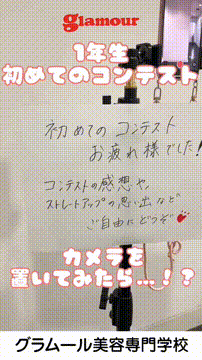 glamour
1年生
初めてのコンテスト
初めての コンテスト
お疲れ様でした!
コンテストの感想や、
ストレートアップの思い出など
ご自由にどうぞ
カメラを
置いてみたら...!?
グラムール美容専門学校